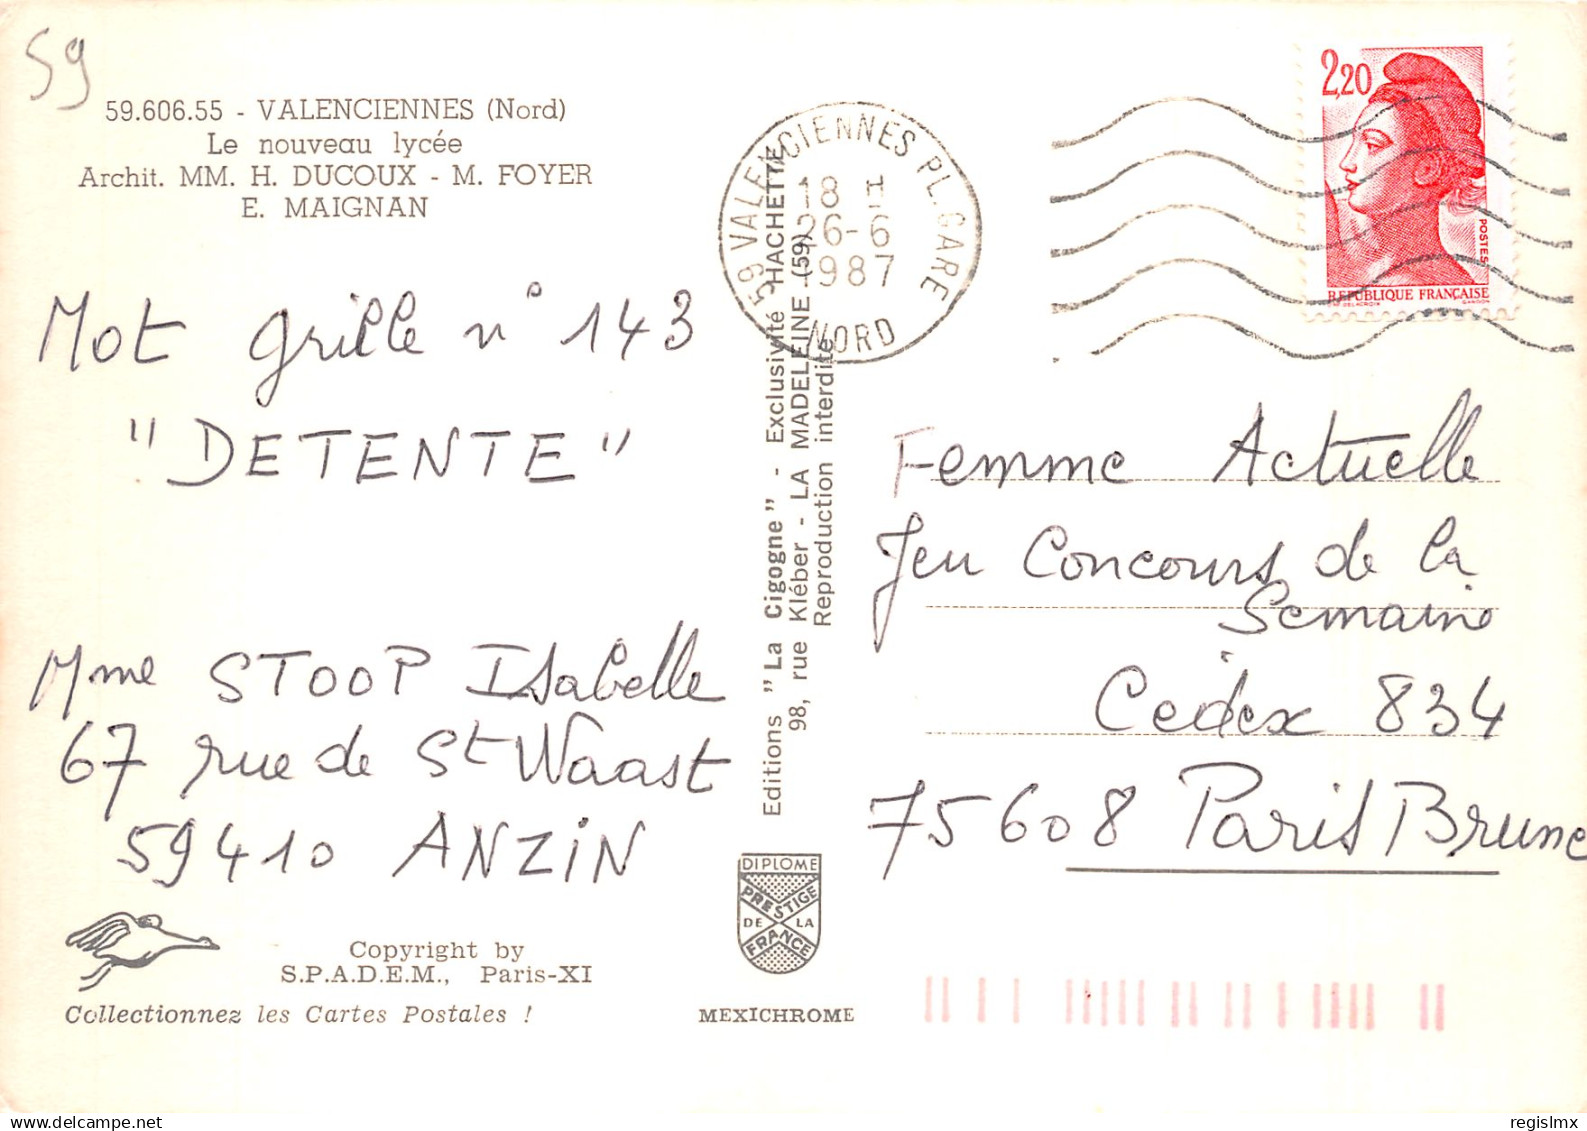 59
59.606.55 - VALENCIENNES (Nord)
Le nouveau lycée
Archit. MM. H. DUCOUX - M. FOYER
E. MAIGNAN
Mot grille n° 143
"DETENTE"
Mme STOOP Isabelle
67 rue de St Waast
59410 ANZIN
Copyright by
S.P.A.D.E.M., Paris-XI
Collectionnez les Cartes Postales !
Editions "La Cigogne" - Exclusivité HACHETTE
98, rue Kléber - LA MADELEINE (59)
Reproduction interdite
DIPLOME
PRESTIGE
DE LA
FRANCE
MEXICHROME
59 VALENCIENNES PL. GARE
18 H
26-6
1987
NORD
2,20
POSTES
REPUBLIQUE FRANÇAISE
Femme Actuelle
Jeu Concours de la
Semaine
Cédex 834
75608 Paris Brune
delcampe.net
regislmx